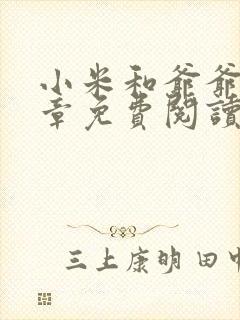 小米和爺爺
章免費閱讀
三上康明 田中